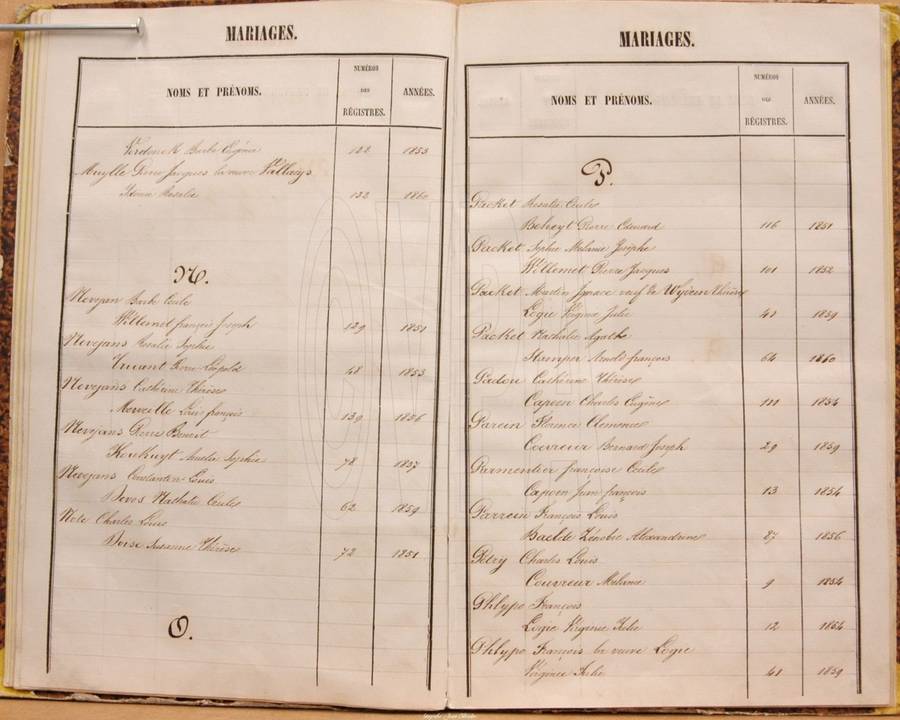 MARIAGES.
NOMS ET PRÉNOMS.
NUMÉROS
DES
RÉGISTRES.
ANNÉES.
Verdonck Barbe Eugénie 122 1853
Muylle Pierre Jacques la veuve
Rosalie 132 1860
N.
Nevejan Barbe Cecile
Willemet françois Joseph 129 1851
Nevejans Rosalie Sophie
Pierre Léopold 48 1853
Nevejans Cathérine Thérèse
Merveille Louis françois 139 1856
Nevejans Pierre Benoit
Amélie Sophie 78 1857
Nevejans Constantin Louis
Devos Nathalie Cecile 62 1859
Note Charles Louis
Susanne Thérèse 72 1851
O.
MARIAGES.
NOMS ET PRÉNOMS.
NUMÉROS
DES
RÉGISTRES.
ANNÉES.
P.
Packet Rosalie Cecile
Beheyt Pierre Edouard 116 1851
Packet Sophie Melanie Josephe
Willemet Pierre Jacques 101 1852
Packet Martin Ignace veuf de Thérèse
Logie Virginie Julie 41 1859
Packet Nathalie Agathe
Stamper Arnold françois 64 1860
Padou Cathérine Thérèse
Capoen Charles Eugène 111 1854
Parein Florence Clemence
Couvreur Bernard Joseph 29 1859
Parmentier françoise Cecile
Capoen Jean françois 13 1854
Parrein François Louis
Baelde Zénobie Alexandrine 87 1856
Petry Charles Louis
Couvreur Melanie 9 1854
Phlypo François
Logie Virginie Julie 12 1854
Phlypo François la veuve Logie
Virginie Julie 41 1859